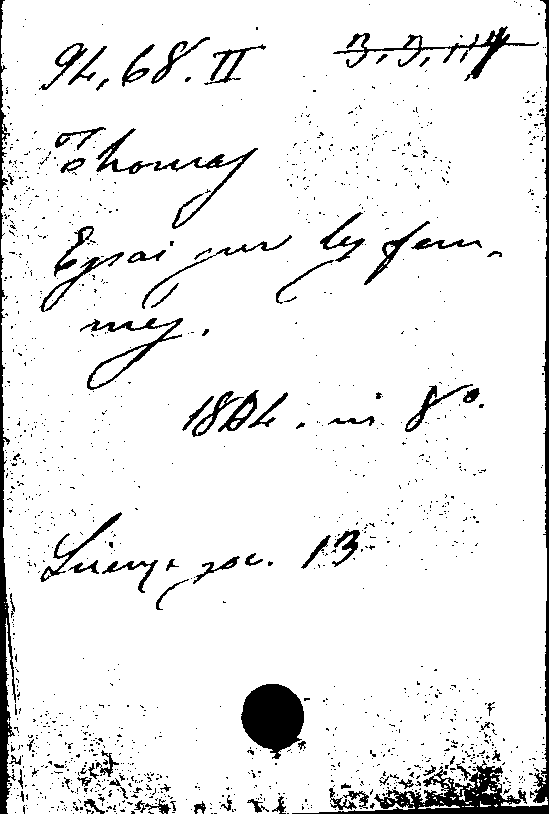 94,68. II 3,3,117
Thomas
Essai sur les fem-
mes.
1804. in 8°.
Scienze soc. 13